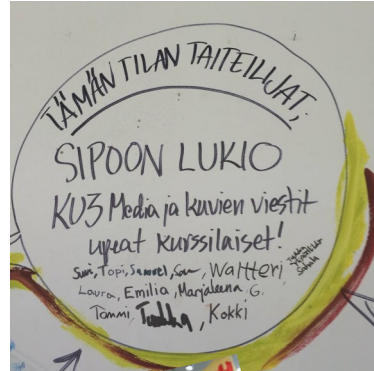 TÄMÄN TILAN TAITEILIJAT;
SIPOON LUKIO
KU3 Media ja kuvien viestit
upeat kurssilaiset!
Suvi, Topi, Samuel, Sau, Waltteri,
Laura, Emilia, Marjaleena G.
Tommi, Tukka, Kokki